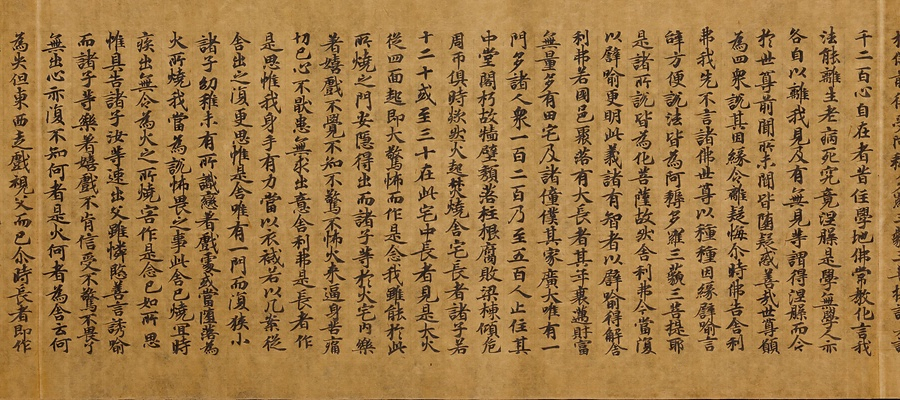 千二百心自在者昔住學地佛常教化言我
法能離生老病死究竟涅槃是學無學人亦
各自以離我見及有無見等謂得涅槃而今
於世尊前聞所未聞皆墮疑惑善哉世尊願
為四衆說其因緣令離疑悔尒時佛告舍利
弗我先不言諸佛世尊以種種因緣譬喻言
辭方便說法皆為阿耨多羅三藐三菩提耶
是諸所說皆為化菩薩故然舍利弗今當復
以譬喻更明此義諸有智者以譬喻得解舍
利弗若國邑聚落有大長者其年衰邁財富
無量多有田宅及諸僮僕其家廣大唯有一
門多諸人衆一百二百乃至五百人止住其
中堂閣朽故墻壁頹落柱根腐敗梁棟傾危
周帀俱時欻然火起焚燒舍宅長者諸子若
十二十或至三十在此宅中長者見是大火
從四面起即大驚怖而作是念我雖能於此
所燒之門安隱得出而諸子等於火宅內樂
著嬉戲不覺不知不驚不怖火來逼身苦痛
切己心不厭患無求出意舍利弗是長者作
是思惟我身手有力當以衣裓若以几案從
舍出之復更思惟是舍唯有一門而復狹小
諸子幼稚未有所識戀著戲處或當墮落為
火所燒我當為說怖畏之事此舍已燒宜時
疾出無令為火之所燒害作是念已如所思
惟具告諸子汝等速出父雖憐愍善言誘喻
而諸子等樂著嬉戲不肯信受不驚不畏了
無出心亦復不知何者是火何者為舍云何
為失但東西走戲視父而已尒時長者即作